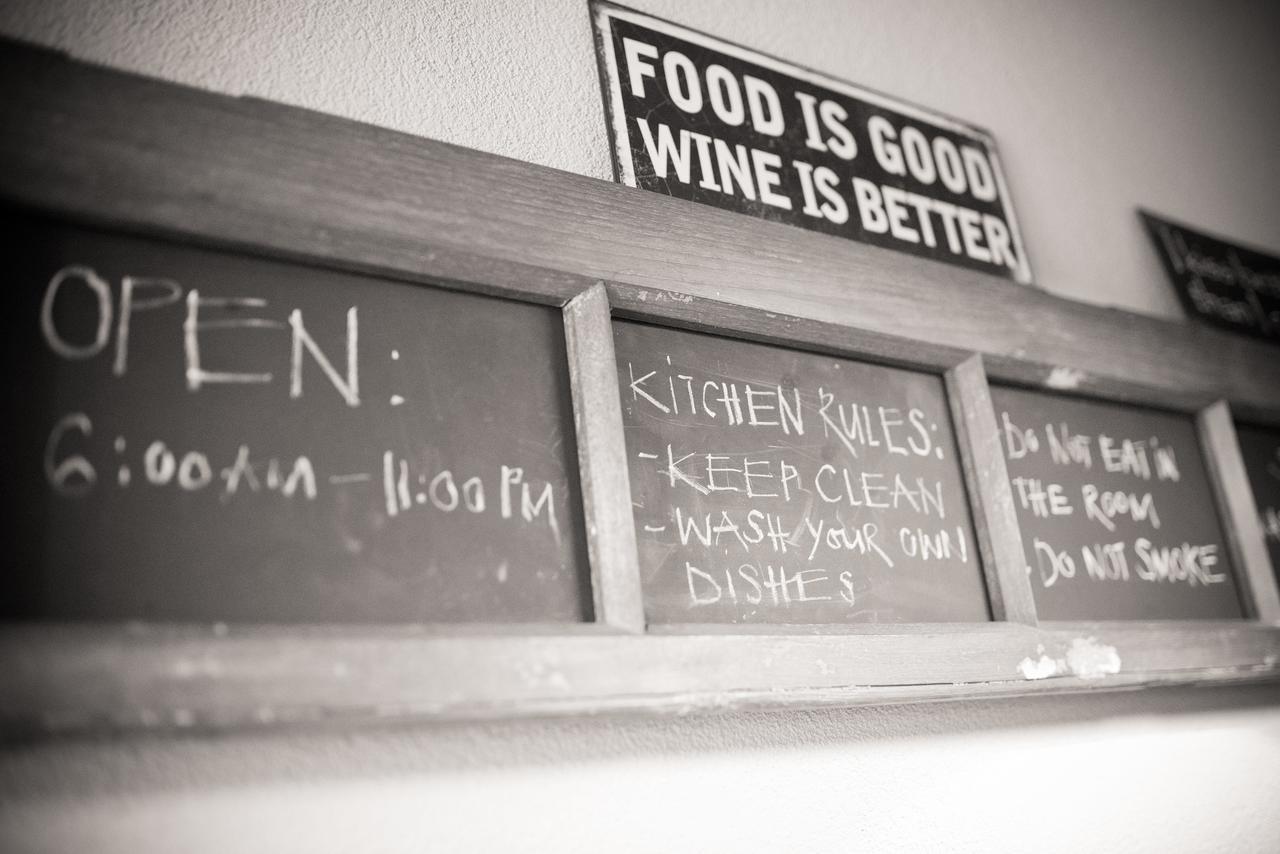 FOOD IS GOOD
WINE IS BETTER
OPEN:
6:00AM - 11:00PM
KiTCHEN RULES:
- KEEP CLEAN
- WASH youR OWN
DISHES
DO NOT EAT iN
THE ROOM
. DO NOT SMOKE